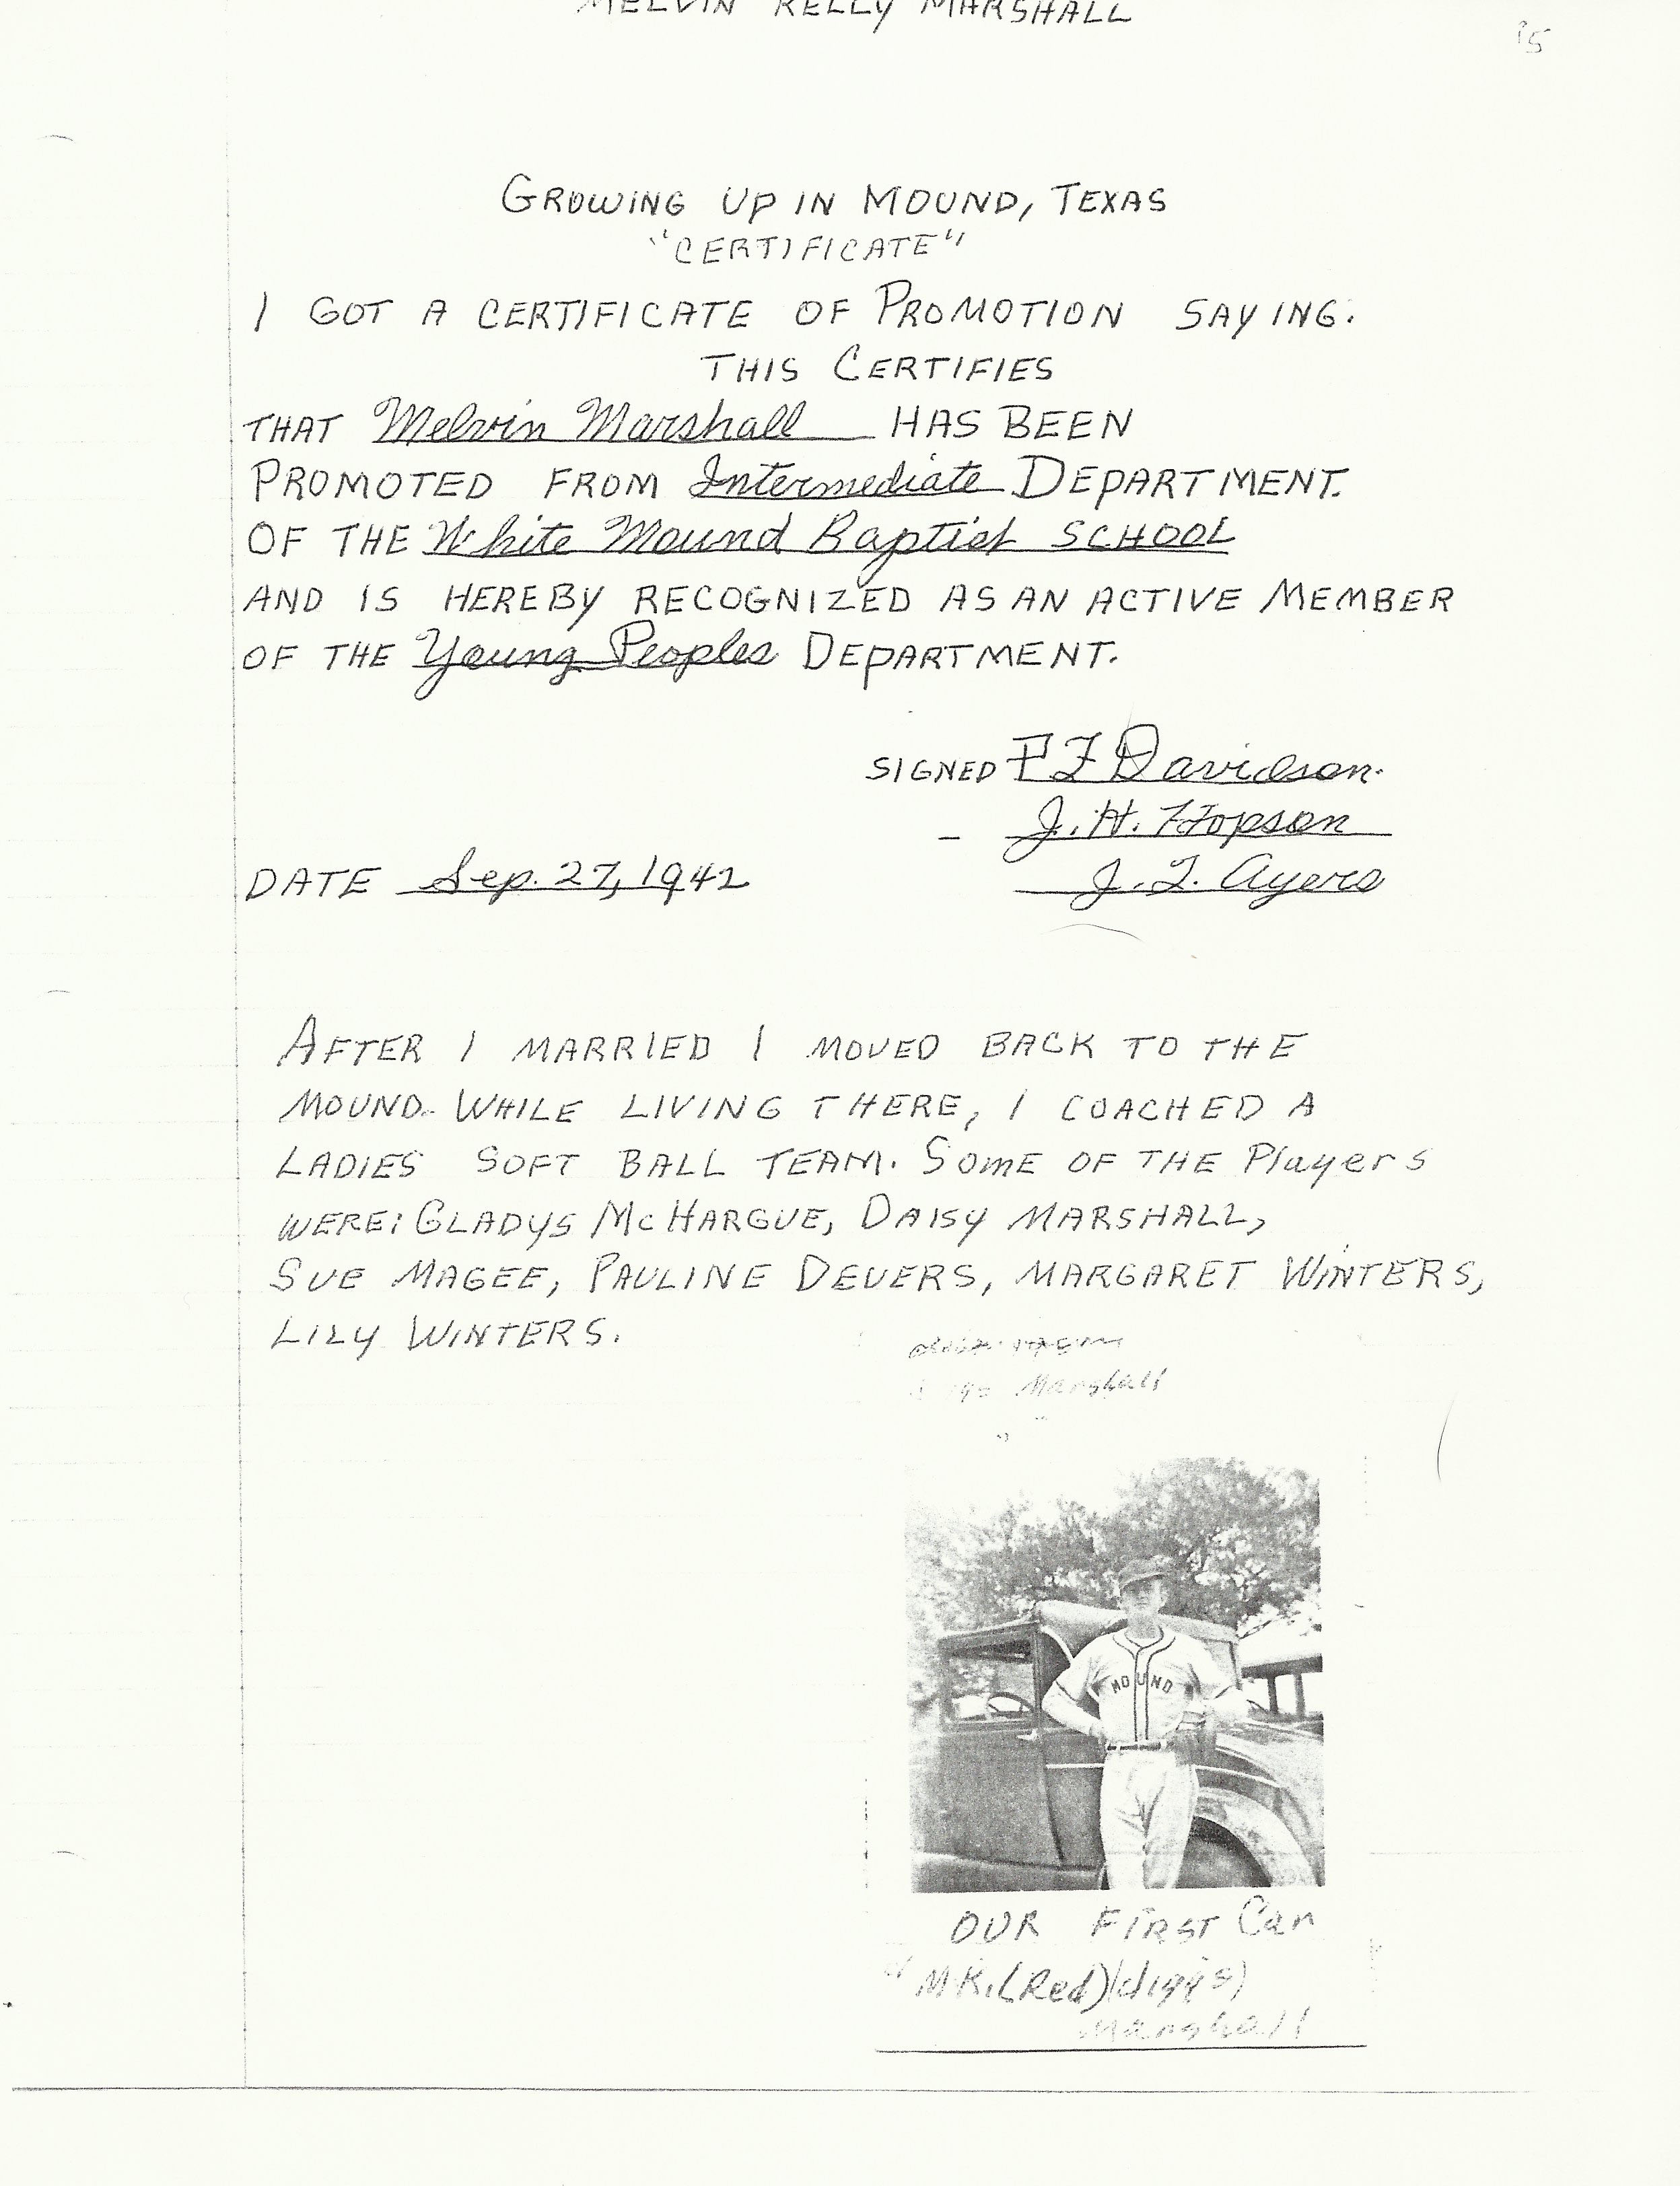 MELVIN KELLY MARSHALL
GROWING UP IN MOUND, TEXAS
"CERTIFICATE"
I GOT A CERTIFICATE OF PROMOTION SAYING.
THIS CERTIFIES
THAT Melvin Marshall HAS BEEN
PROMOTED FROM Intermediate DEPARTMENT.
OF THE White Mound Baptist SCHOOL
AND IS HEREBY RECOGNIZED AS AN ACTIVE MEMBER
OF THE Young Peoples DEPARTMENT.
SIGNED Davidson.
J. H. Hopson
DATE Sep. 27, 1942
Ayers
AFTER I MARRIED I MOVED BACK TO THE
MOUND. WHILE LIVING THERE, I COACHED A
LADIES SOFT BALL TEAM. Some OF THE Players
WERE: GLADYS McHARGUE, DAISY MARSHALL,
Sue MAGEE, PAULINE DEVERS, MARGARET WINTERS,
LILY WINTERS.
Marshall
MOUND
OUR FIRST Car
M.K. (Red)
Marshall